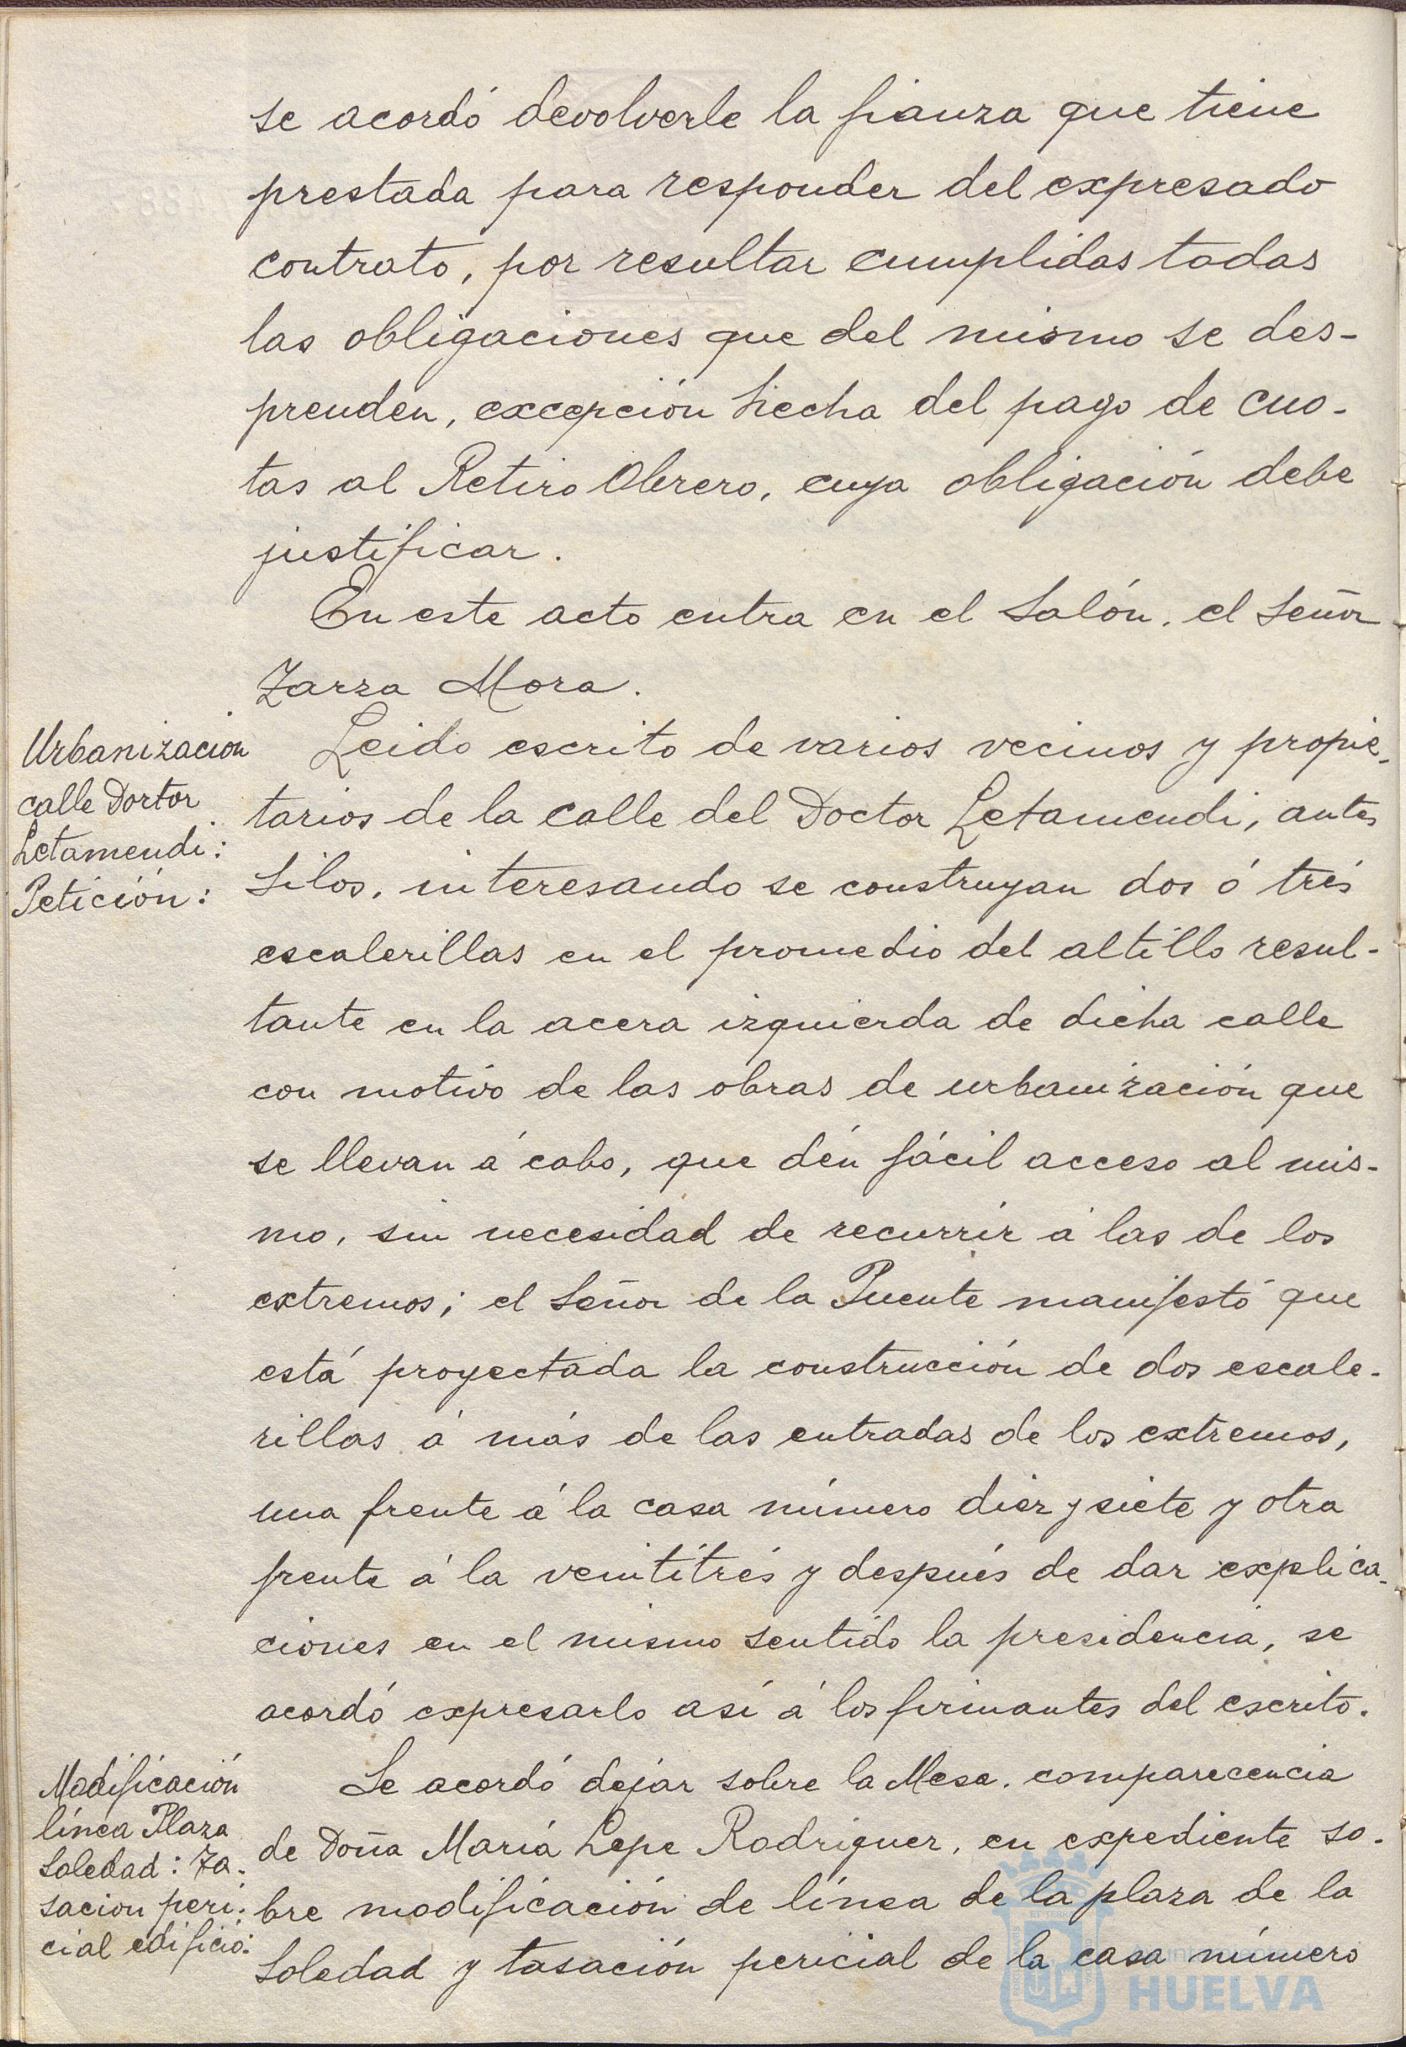 se acordó devolverle la fianza que tiene
prestada para responder del expresado
contrato, por resultar cumplidas todas
las obligaciones que del mismo se des-
prenden, excepción hecha del pago de cuo-
tas al Retiro Obrero, cuya obligación debe
justificar.
En este acto entra en el Salón, el Señor
Zarza Mora.
Urbanizacion
calle Doctor
Letamendi:
Petición:
Leido escrito de varios vecinos y propie-
tarios de la calle del Doctor Letamendi, antes
Silos, interesando se construyan dos ó trés
escalerillas en el promedio del altillo resul-
tante en la acera izquierda de dicha calle
con motivo de las obras de urbanización que
se llevan á cabo, que dén fácil acceso al mis-
mo, sin necesidad de recurrir á las de los
extremos; el Señor de la Puente manifestó que
está proyectada la construcción de dos escale-
rillas á más de las entradas de los extremos,
una frente á la casa número diez y siete y otra
frente á la veintitrés y después de dar explica-
ciones en el mismo sentido la presidencia, se
acordó expresarlo así á los firmantes del escrito.
Modificación
línea Plaza
Soledad: Ta-
sacion peri-
cial edificio:
Se acordó dejar sobre la Mesa, comparecencia
de Doña María Lepe Rodriguez, en expediente so-
bre modificación de línea de la plaza de la
Soledad y tasación pericial de la casa número
HUELVA